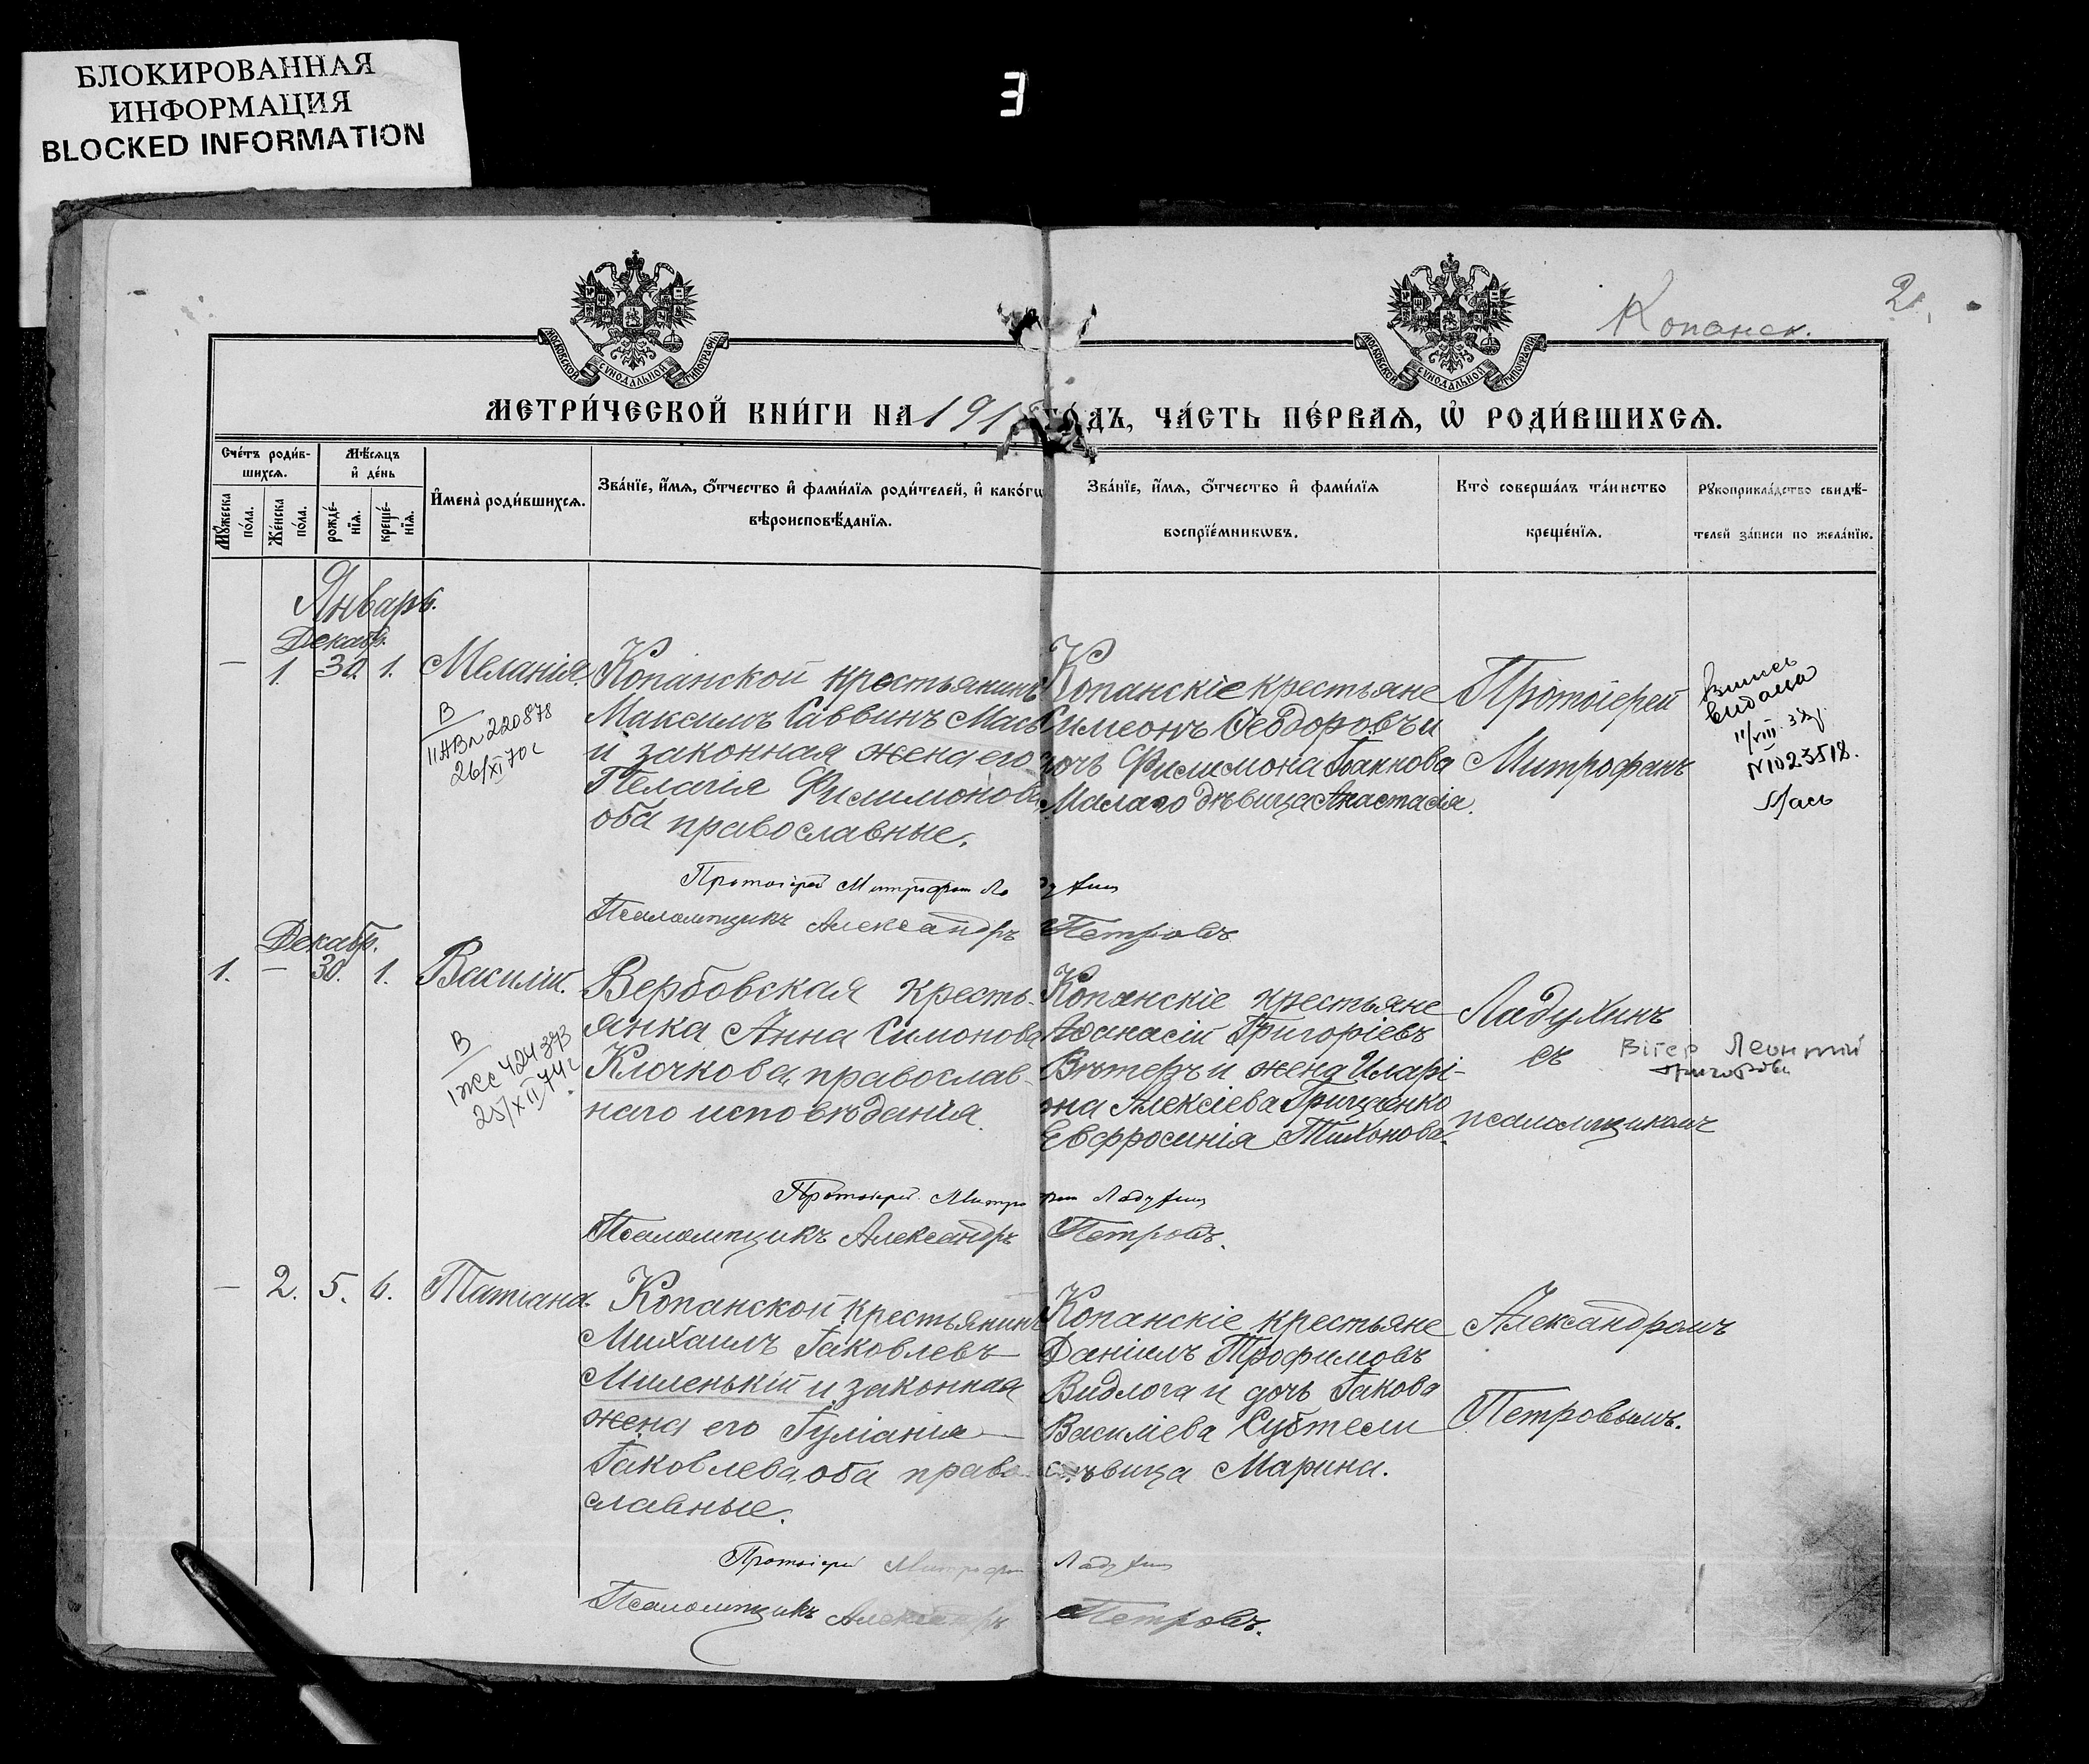 БЛОКИРОВАННАЯ
ИНФОРМАЦИЯ
BLOCKED INFORMATION
3
Копанск.
2
МОСКОВСКОЙ СѴНОДАЛЬНОЙ ТИПОГРАФІИ
МОСКОВСКОЙ СѴНОДАЛЬНОЙ ТИПОГРАФІИ
МЕТРИ́ЧЕСКОЙ КНИ́ГИ НА 191 ГО́ДЪ, ЧА́СТЬ ПЕ́РВАЯ, Ѡ҆ РОДИ́ВШИХСЯ.
Сче́тъ роди́в-
шихся.
Мѣ́сяцъ
и҆ де́нь
Мꙋ́жеска
по́ла.
Же́нска
по́ла.
рожде́-
нїя.
креще́-
нїя.
И҆мена̀ роди́вшихся.
Зва́нїе, и҆́мя, о҆́тчество и҆ фами́лїя роди́телей, и҆ како́гѡ
вѣроисповѣ́данїя.
Зва́нїе, и҆́мя, о҆́тчество и҆ фами́лїя
воспрїе́мникѡвъ.
Кто̀ соверша́лъ та́инство
креще́нїя.
Рꙋкоприкла́дство свидѣ́-
телей за́писи по жела́нїю.
Январь.
Декабр.
— 1. 30. 1. Меланія.
В
IIАВ № 220878
26/XI 70 г
Копанской крестьянинъ
Максимъ Саввинъ Мась
и законная жена его
Пелагія Филимонова
оба православные.
Копанскіе крестьяне
Симеонъ Ѳеодоровъ и
дочь Филимона
Малаго дѣвица Анастасія.
Протоіерей
Митрофанъ
видана
11/VIII
N1023518.
Мась
Протоіерей Митрофан Ладухин
Псаломщикъ Александръ Петровъ
Декабр.
1. — 30. 1. Василій.
В
IЖС 424373
25/XII 74 г
Вербовская кресть-
янка Анна Симонова
Клочкова, православ-
наго исповѣданія.
Копанскіе крестьяне
Аѳанасій Григоріевъ
Вѣтеръ и жена Иларі-
она Алексіева Грищенко
Евфросинія Тихонова.
Ладухинъ
съ
псаломщикомъ
Вітер Леонтий
Григорови
Протоіерей Митрофан Ладухин
Псаломщикъ Александръ Петровъ.
— 2. 5. 6. Татіана.
Копанской крестьянинъ
Михаилъ Іаковлевъ
Миленькій и законная
жена его Іуліанія
Іаковлева, оба право-
славные.
Копанскіе крестьяне
Даніилъ Трофимовъ
Видлога и дочь Іакова
Василіева Субтели
дѣвица Марина.
Александромъ
Петровымъ.
Протоіерей Митрофан Ладухин
Псаломщикъ Александръ Петровъ.